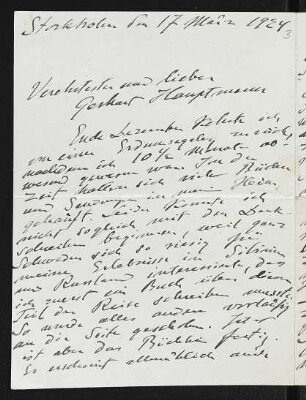 Stockholm den 17 März 1924
3
Verehrtester und lieber
Gerhart Hauptmann
Ende Dezember kehrte ich
von einer Erdumsegelung zurück,
nachdem ich 10 1/2 Monate ab-
wesend gewesen war. In der
Zeit hatten sich viele Bücher
und in mein Heim
gehäuft. Leider konnte ich
nicht sogleich mit den Dank
schreiben beginnen, weil ganz
Schweden sich so riesig für
meine Erlebnisse in Sibirien
und Russland interessierte, dass
ich zuerst ein Buch über diesen
Teil der Reise schreiben musste.
So wurde alles andere vorläufig
an die Seite geschoben. Jetzt
ist aber das Büchlein fertig.
Es erscheint allmählich auch